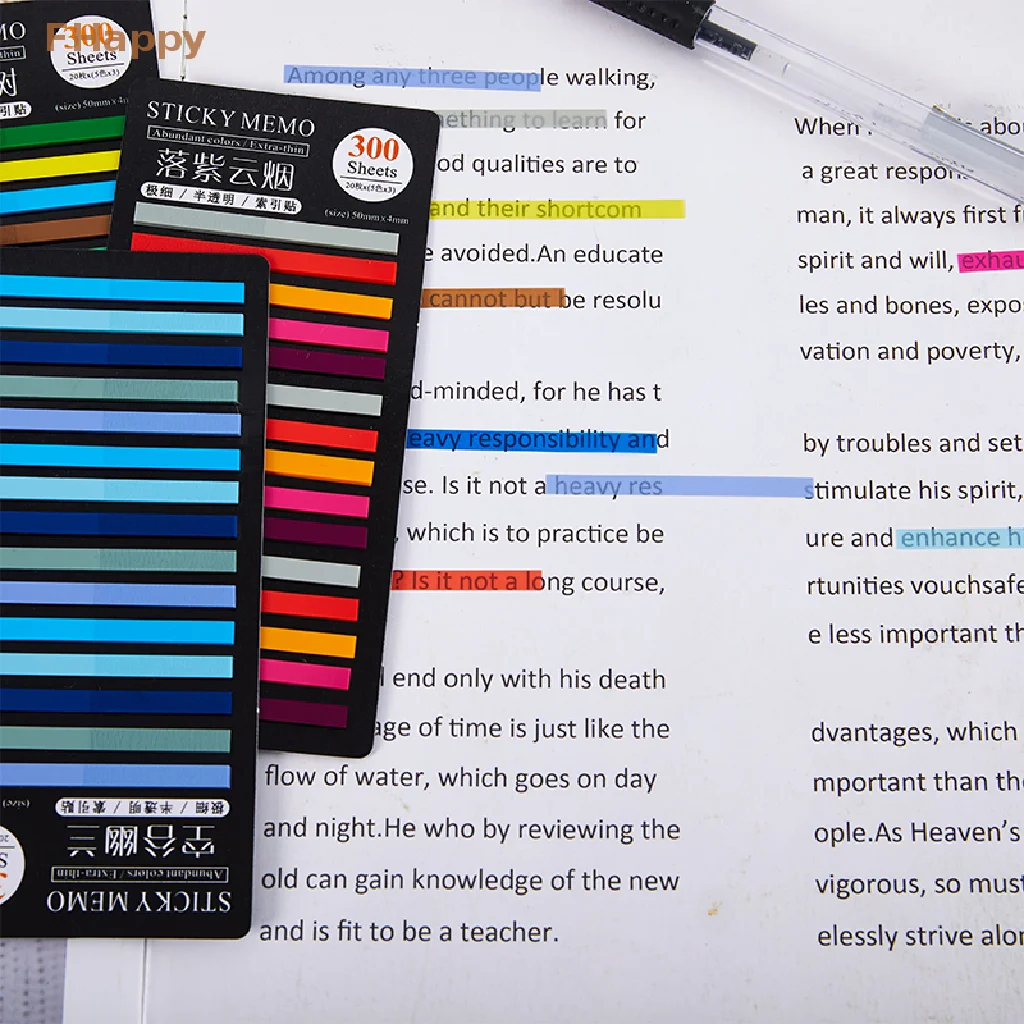 FHappy
300
Sheets
20枚x(5色x3)
(size) 50mm×4m
STICKY MEMO
Abundant colors / Extra-thin
落紫云烟
极细 / 半透明 / 索引贴
300
Sheets
20枚x(5色x3)
(size) 50mm×4mm
STICKY MEMO
Abundant colors / Extra-thin
空谷幽兰
极细 / 半透明 / 索引贴
(size)
Among any three people walking,
ething to learn for
od qualities are to
and their shortcom
e avoided.An educate
cannot but be resolu
d-minded, for he has t
eavy responsibility and
se. Is it not a heavy res
, which is to practice be
? Is it not a long course,
end only with his death
age of time is just like the
flow of water, which goes on day
and night.He who by reviewing the
old can gain knowledge of the new
and is fit to be a teacher.
When
abou
a great respon
man, it always first f
spirit and will, exhau
les and bones, expo
vation and poverty,
by troubles and set
stimulate his spirit,
ure and enhance h
rtunities vouchsafe
e less important th
dvantages, which
mportant than the
ople.As Heaven's
vigorous, so must
elessly strive alon